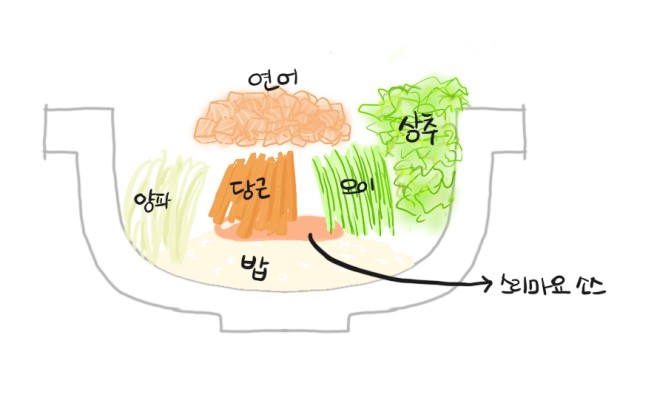 연어
상추
양파
당근
오이
밥
스리마요 소스